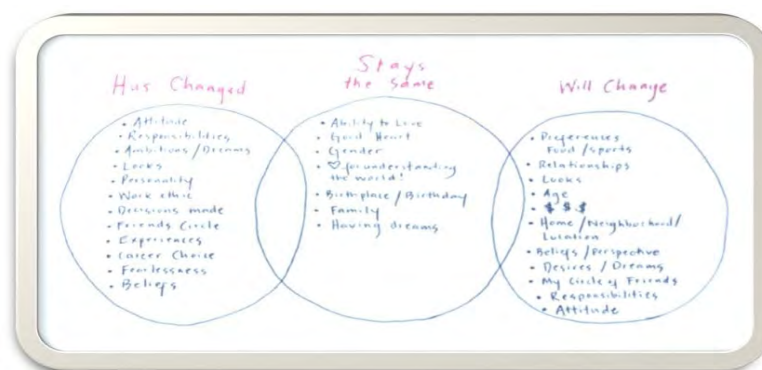 Has Changed
• Attitude
• Responsibilities
• Ambitions/Dreams
• Looks
• Personality
• Work ethic
• Decisions made
• Friends Circle
• Experiences
• Career Choice
• Fearlessness
• Beliefs
Stays
the Same
• Ability to Love
• Good Heart
• Gender
• ♡ for understanding
the world!
• Birthplace/Birthday
• Family
• Having dreams
Will Change
• Preferences
Food/sports
• Relationships
• Looks
• Age
• $ $ $
• Home/Neighborhood/
Location
• Beliefs/Perspective
• Desires/Dreams
• My Circle of Friends
• Responsibilities
• Attitude